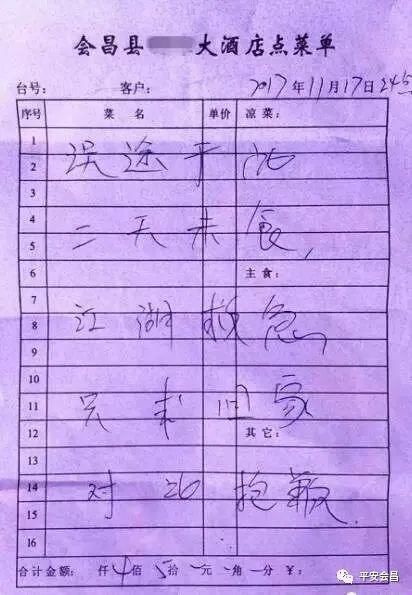 会昌县 大酒店点菜单
台号: 客户: 2017年11月17日24点
序号 菜名 单价 凉菜:
1
2 误途于此
3
4
5 二天未食,
6 主食:
7
8 江湖救急
9
10
11 只求回家
12 其它:
13
14 对此抱歉.
15
16
合计金额: 仟4佰5拾 元 角 分 ¥:
平安会昌